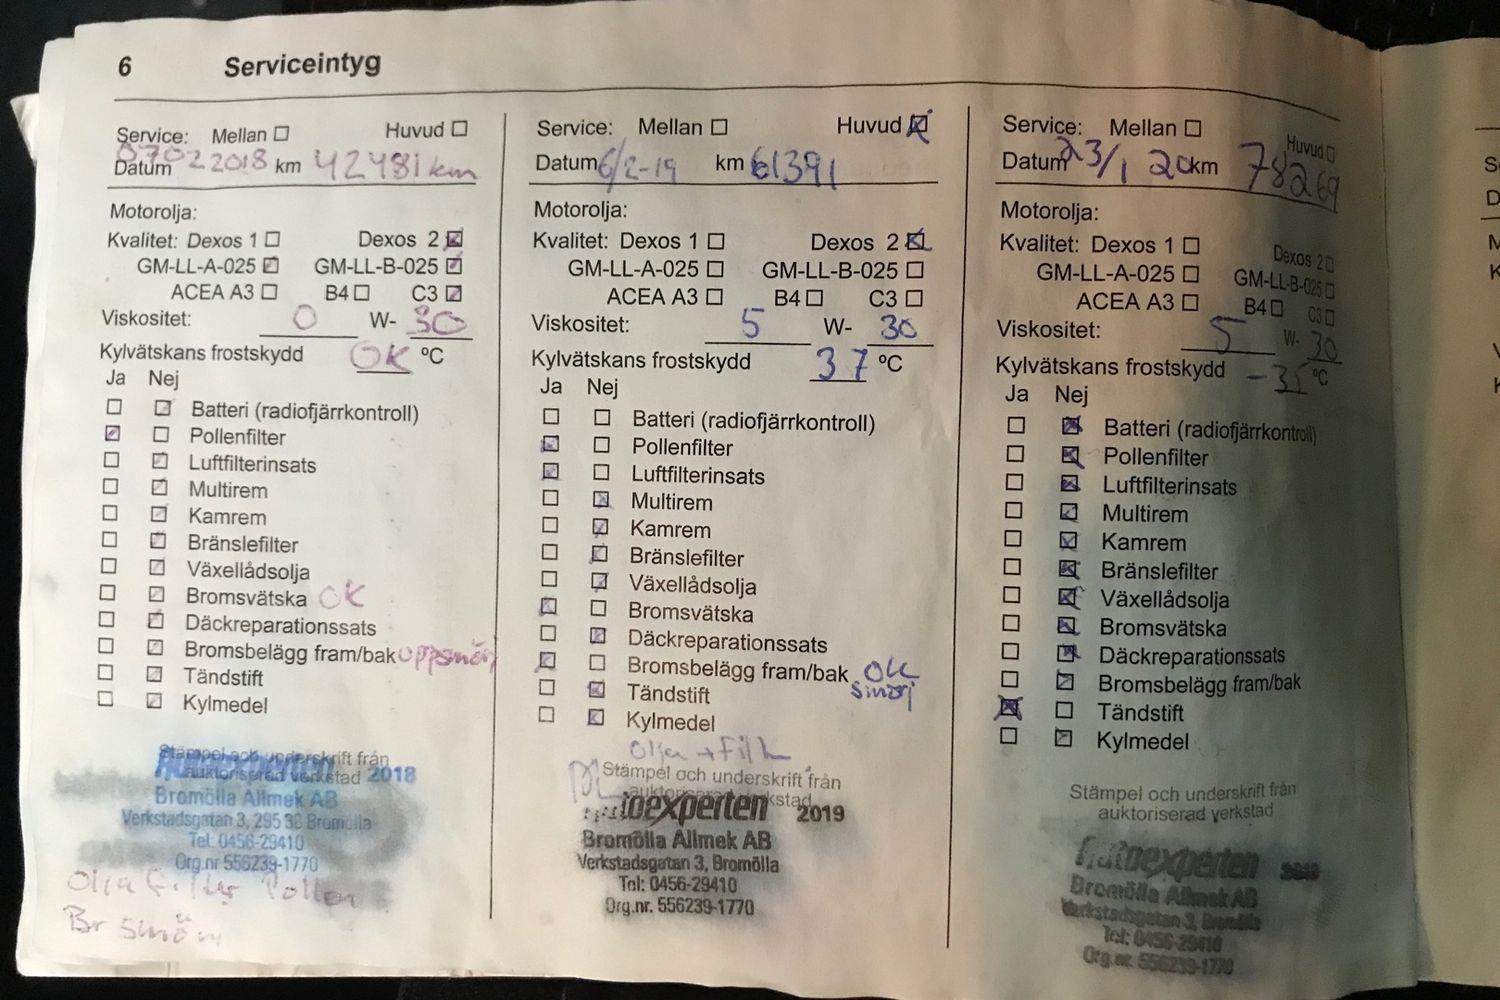 6 Serviceintyg
Service: Mellan Huvud
Datum 07022018 km 42481 km
Motorolja:
Kvalitet: Dexos 1 Dexos 2
GM-LL-A-025 GM-LL-B-025
ACEA A3 B4 C3
Viskositet: 0 W- 30
Kylvätskans frostskydd OK ºC
Ja Nej
Batteri (radiofjärrkontroll)
Pollenfilter
Luftfilterinsats
Multirem
Kamrem
Bränslefilter
Växellådsolja
Bromsvätska OK
Däckreparationssats
Bromsbelägg fram/bak uppsmörj
Tändstift
Kylmedel
Stämpel och underskrift från
auktoriserad verkstad 2018
Bromölla Allmek AB
Verkstadsgatan 3, 295 38 Bromölla
Tel: 0456-29410
Org.nr 556239-1770
Olja Filter Pollen
Br
Service: Mellan Huvud
Datum 6/2-19 km 61391
Motorolja:
Kvalitet: Dexos 1 Dexos 2
GM-LL-A-025 GM-LL-B-025
ACEA A3 B4 C3
Viskositet: 5 W- 30
Kylvätskans frostskydd 37 ºC
Ja Nej
Batteri (radiofjärrkontroll)
Pollenfilter
Luftfilterinsats
Multirem
Kamrem
Bränslefilter
Växellådsolja
Bromsvätska
Däckreparationssats
Bromsbelägg fram/bak OK
smörj
Tändstift
Kylmedel
Olja + Filt
Stämpel och underskrift från
auktoriserad verkstad
autoexperten 2019
Bromölla Allmek AB
Verkstadsgatan 3, Bromölla
Tel: 0456-29410
Org.nr. 556239-1770
Service: Mellan Huvud
Datum 23/1 20 km 78269
Motorolja:
Kvalitet: Dexos 1 Dexos 2
GM-LL-A-025 GM-LL-B-025
ACEA A3 B4 C3
Viskositet: 5 W- 30
Kylvätskans frostskydd -35 ºC
Ja Nej
Batteri (radiofjärrkontroll)
Pollenfilter
Luftfilterinsats
Multirem
Kamrem
Bränslefilter
Växellådsolja
Bromsvätska
Däckreparationssats
Bromsbelägg fram/bak
Tändstift
Kylmedel
Stämpel och underskrift från
auktoriserad verkstad
autoexperten
Bromölla Allmek AB
Verkstadsgatan 3, Bromölla
Tel: 0456-29410
Org.nr. 556239-1770